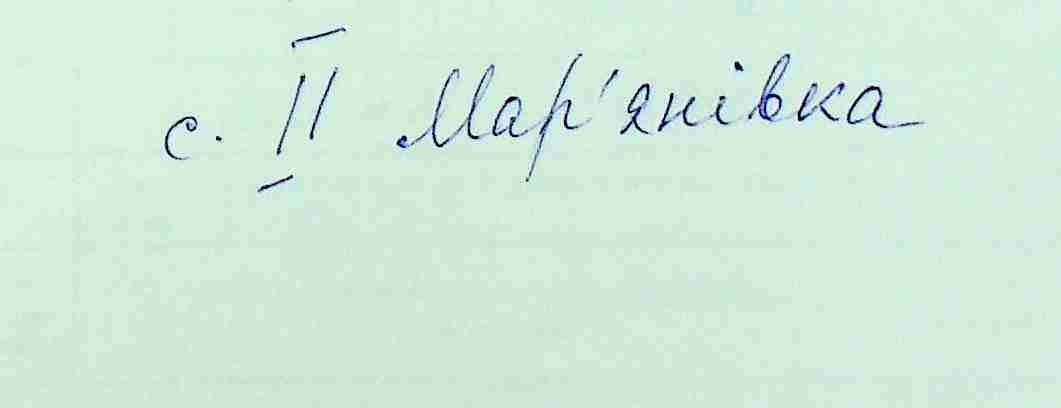 с. ІІ Мар'янівка